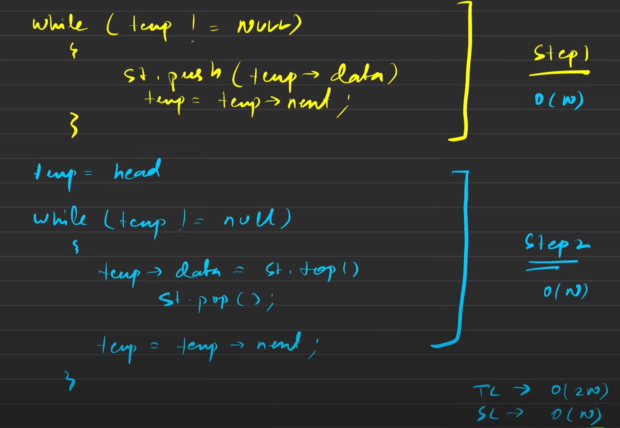 while (temp != NULL)
{
st.push(temp → data)
temp = temp → next;
}
Step 1
O(N)
temp = head
while (temp != null)
{
temp → data = st.top()
st.pop();
temp = temp → next;
}
Step 2
O(N)
TC → O(2N)
SC → O(N)